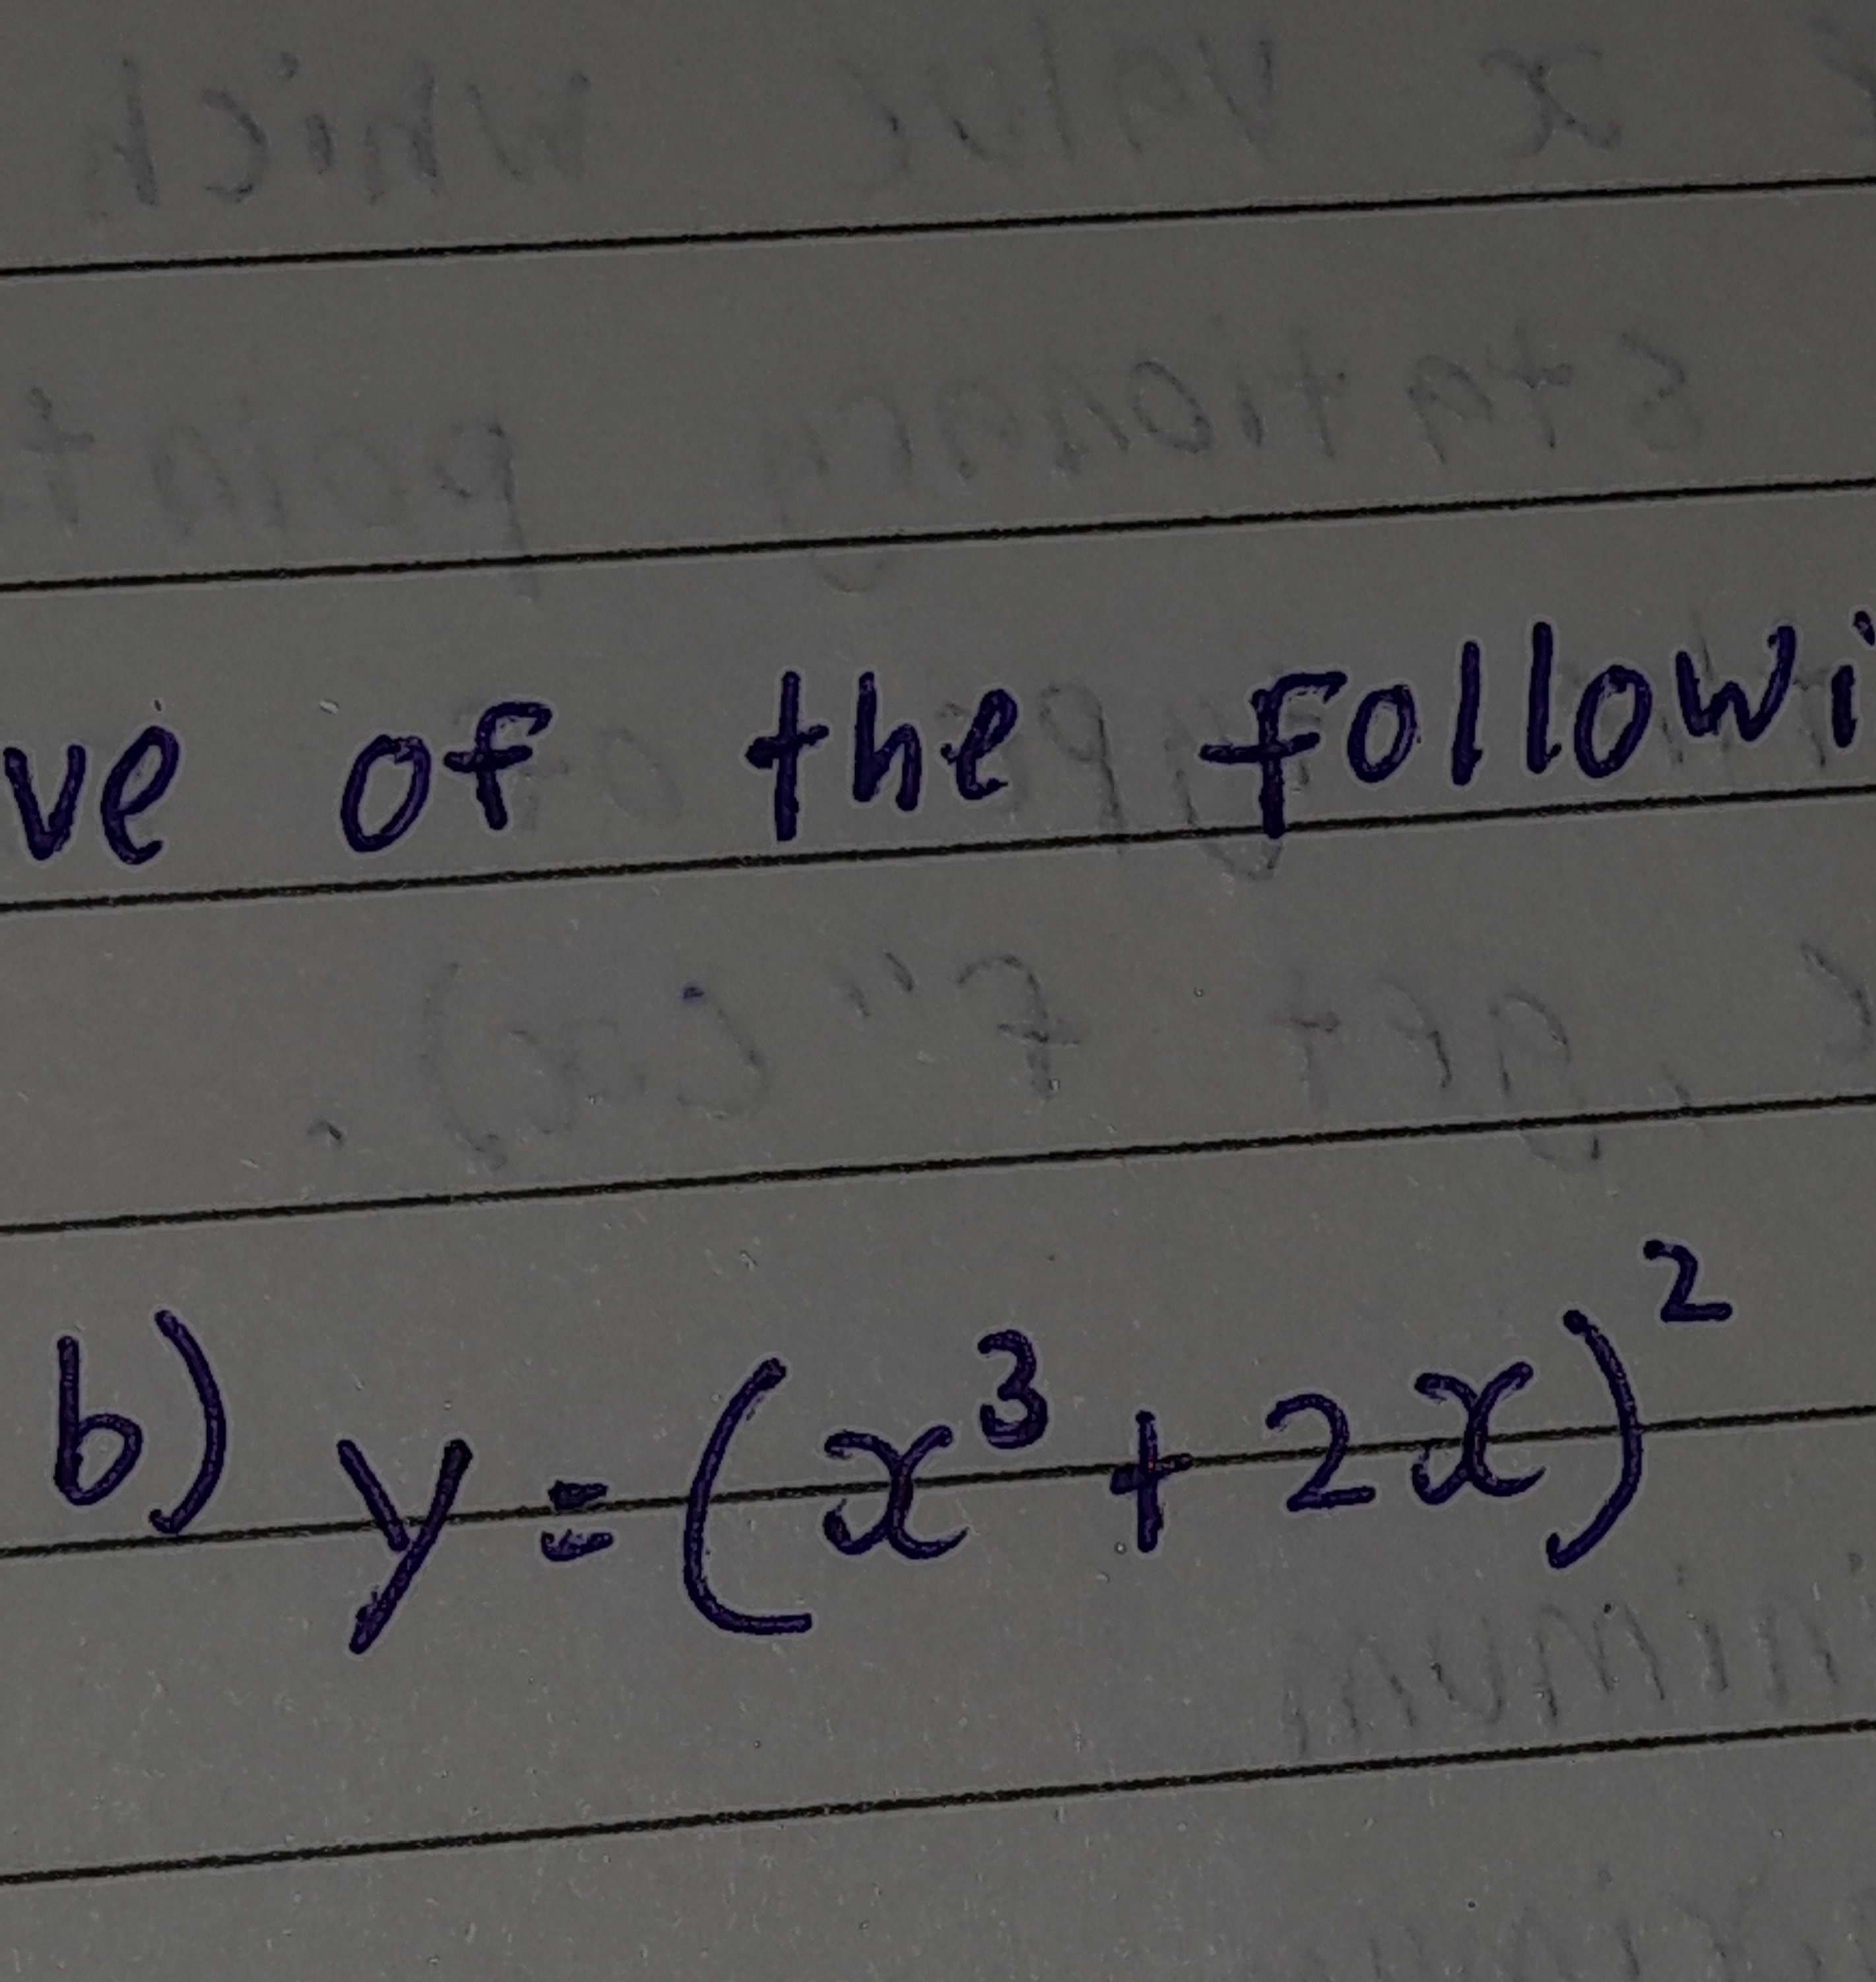 ve of the followi
b) y = (x³ + 2x)²